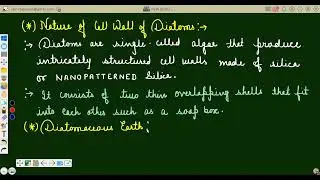 (*) Nature of Cell Wall of Diatoms:→
:→ Diatoms are single-celled algae that produce
intricately structured cell walls made of silica
or NANOPATTERNED Silica.
:→ It consists of two thin overlapping shells that fit
into each other such as a soap box.
(*) Diatomaceous Earth: